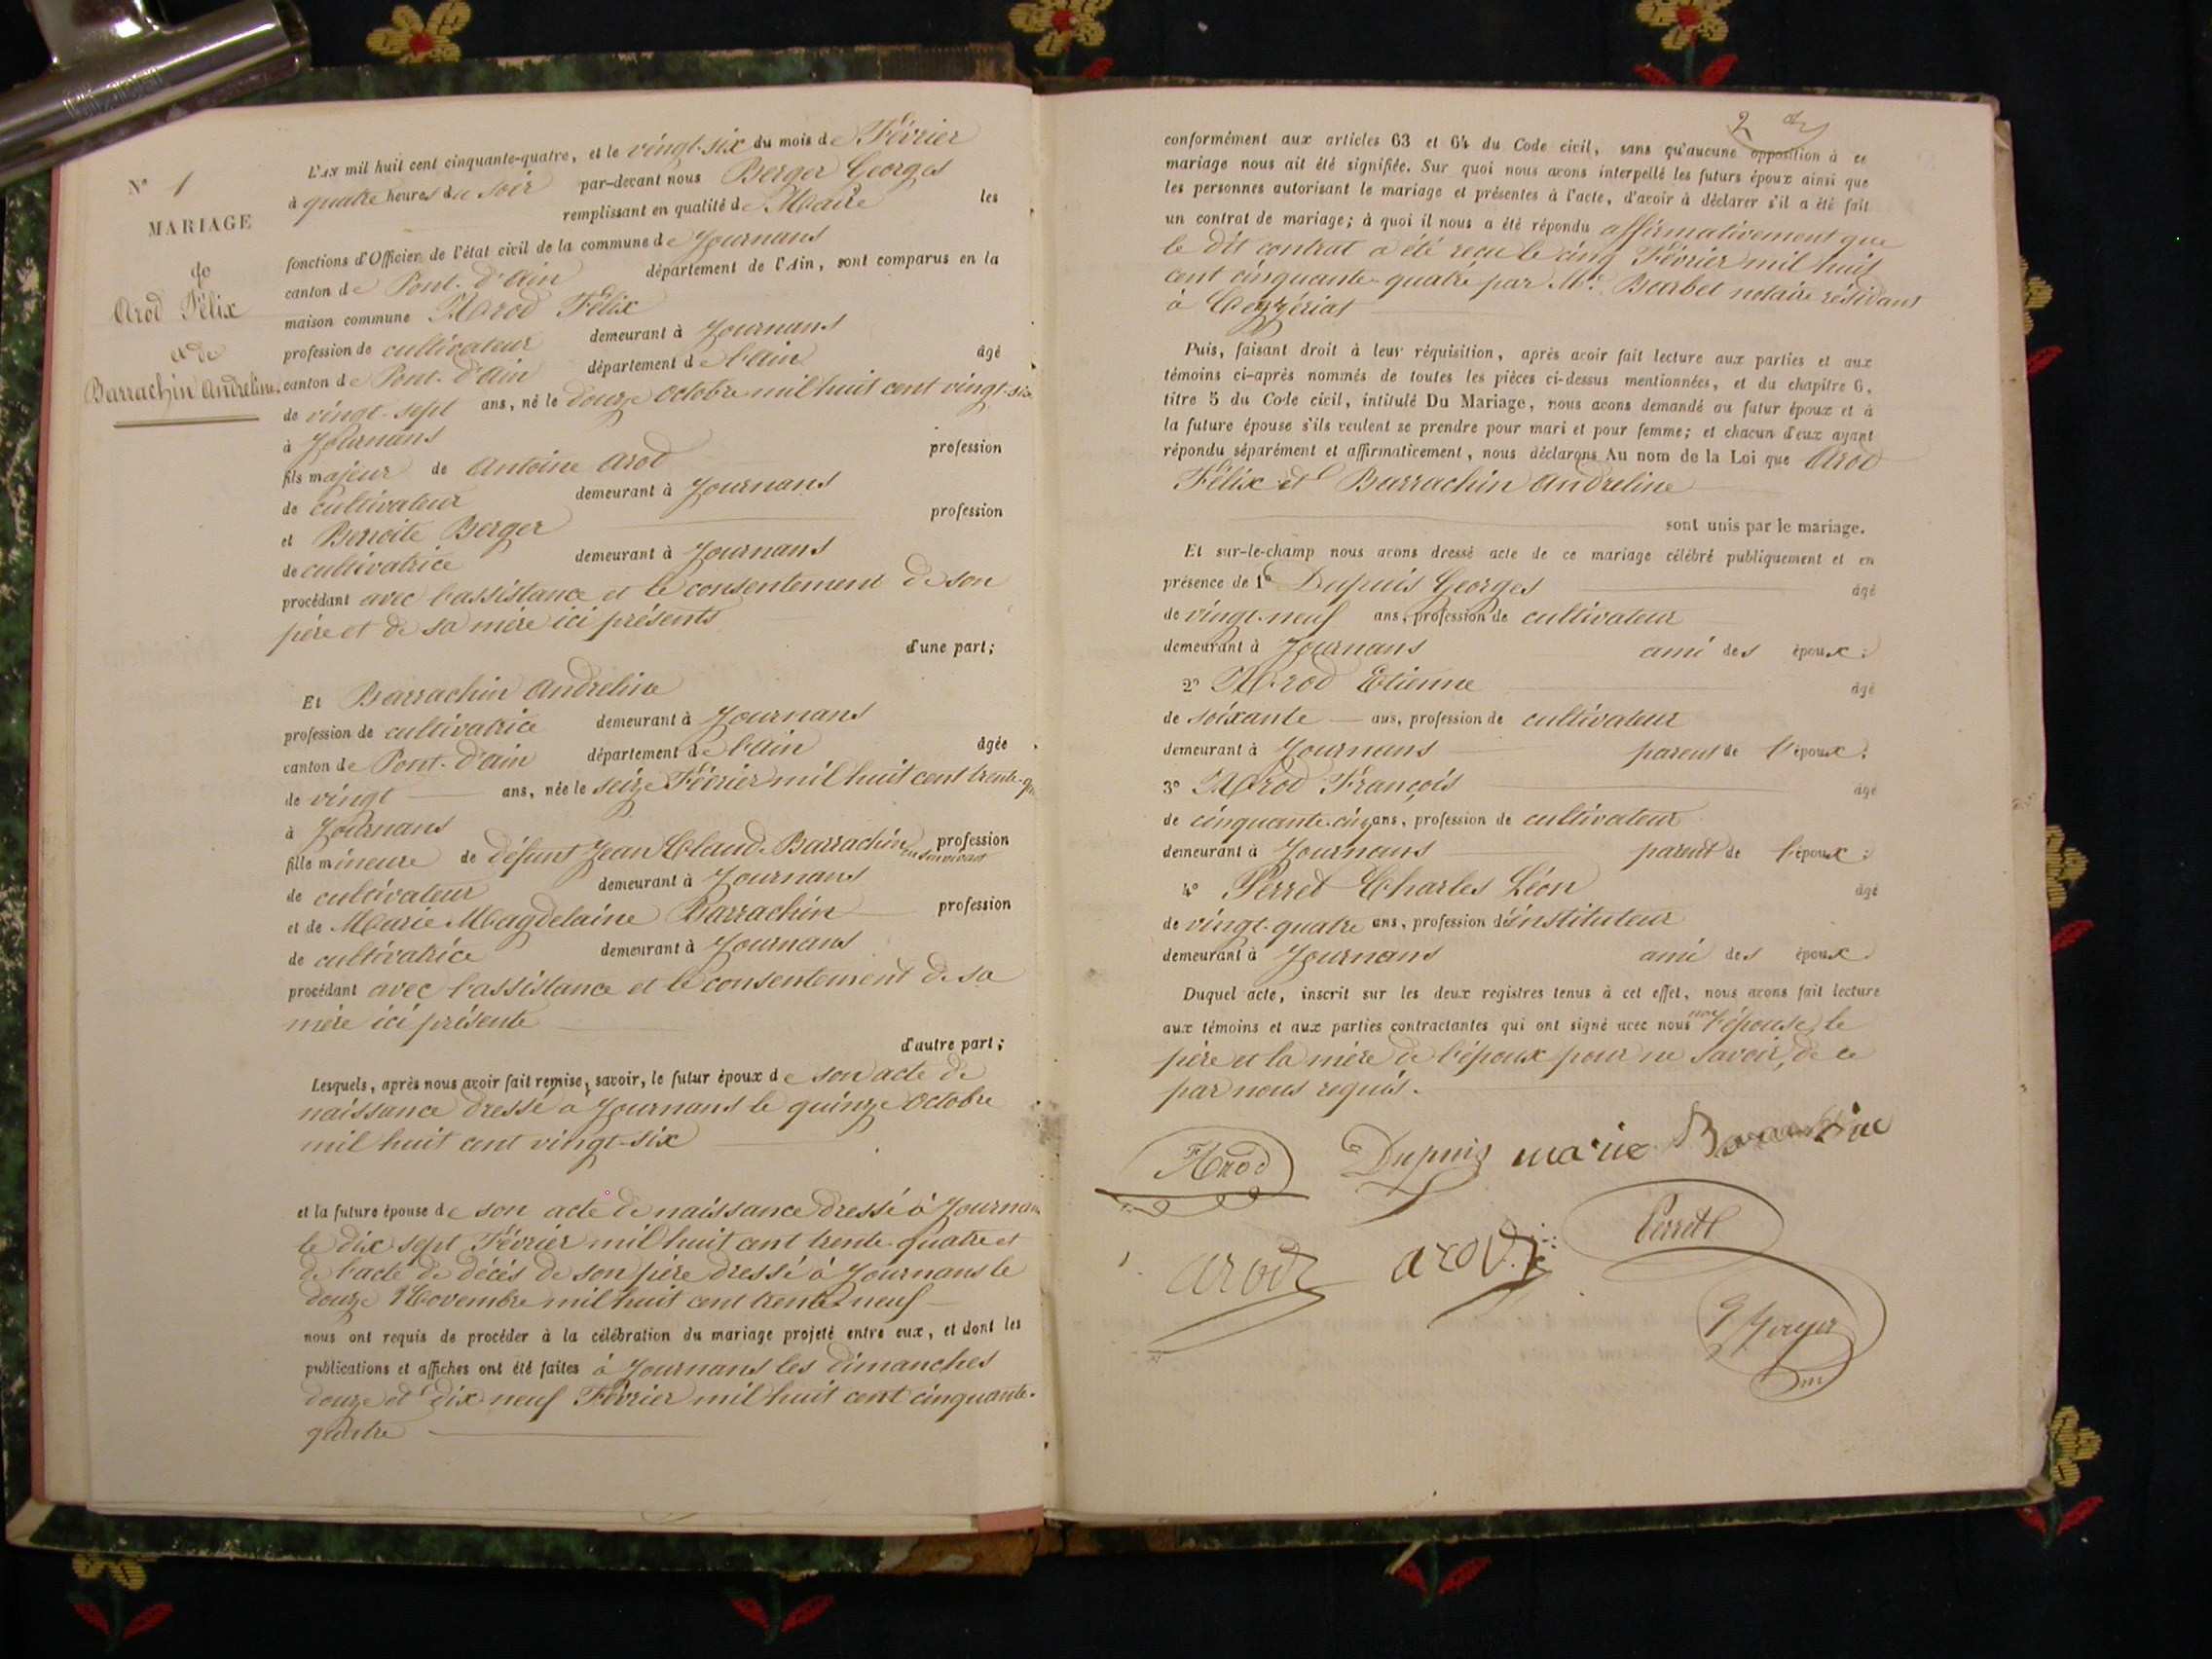 N° 1
MARIAGE
de
Arod Félix
et de
Barrachin Andreline.
L'AN mil huit cent cinquante-quatre, et le vingt-six du mois de Février
à quatre heures du soir par-devant nous Berger Georges
remplissant en qualité de Maire les
fonctions d'Officier de l'état civil de la commune de Journans
canton de Pont-d'Ain département de l'Ain, sont comparus en la
maison commune Arod Félix
profession de cultivateur demeurant à Journans
canton de Pont-d'Ain département de l'Ain âgé
de vingt-sept ans, né le douze Octobre mil huit cent vingt-six
à Journans
fils majeur de Antoine Arod profession
de cultivateur demeurant à Journans
et Benoite Berger profession
de cultivatrice demeurant à Journans
procédant avec l'assistance et le consentement de son
père et de sa mère ici présents
d'une part;
Et Barrachin Andreline
profession de cultivatrice demeurant à Journans
canton de Pont-d'Ain département de l'Ain âgée
de vingt ans, née le seize Février mil huit cent trente-
à Journans
fille mineure de défunt Jean Claude Barrachin profession
en son vivant
de cultivateur demeurant à Journans
et de Marie Magdelaine Barrachin profession
de cultivatrice demeurant à Journans
procédant avec l'assistance et le consentement de sa
mère ici présente
d'autre part;
Lesquels, après nous avoir fait remise, savoir, le futur époux de son acte de
naissance dressé à Journans le quinze Octobre
mil huit cent vingt-six
et la future épouse de son acte de naissance dressé à Journans
le dix sept Février mil huit cent trente-quatre et
de l'acte de décès de son père dressé à Journans le
douze Novembre mil huit cent trente neuf
nous ont requis de procéder à la célébration du mariage projeté entre eux, et dont les
publications et affiches ont été faites à Journans les dimanches
douze et dix neuf Février mil huit cent cinquante-
quatre
2
conformément aux articles 63 et 64 du Code civil, sans qu'aucune opposition à ce
mariage nous ait été signifiée. Sur quoi nous avons interpellé les futurs époux ainsi que
les personnes autorisant le mariage et présentes à l'acte, d'avoir à déclarer s'il a été fait
un contrat de mariage; à quoi il nous a été répondu affirmativement que
le dit contrat a été reçu le cinq Février mil huit
cent cinquante-quatre par Me Barbet notaire résidant
à Ceyzériat
Puis, faisant droit à leur réquisition, après avoir fait lecture aux parties et aux
témoins ci-après nommés de toutes les pièces ci-dessus mentionnées, et du chapitre 6,
titre 5 du Code civil, intitulé Du Mariage, nous avons demandé au futur époux et à
la future épouse s'ils veulent se prendre pour mari et pour femme; et chacun d'eux ayant
répondu séparément et affirmativement, nous déclarons Au nom de la Loi que Arod
Félix et Barrachin Andreline
sont unis par le mariage.
Et sur-le-champ nous avons dressé acte de ce mariage célébré publiquement et en
présence de 1° Dupuis Georges âgé
de vingt-neuf ans, profession de cultivateur
demeurant à Journans ami des époux;
2° Arod Etienne âgé
de soixante ans, profession de cultivateur
demeurant à Journans parent de l'époux;
3° Arod François âgé
de cinquante-cinq ans, profession de cultivateur
demeurant à Journans parent de l'époux;
4° Perret Charles Léon âgé
de vingt-quatre ans, profession d'instituteur
demeurant à Journans ami des époux
Duquel acte, inscrit sur les deux registres tenus à cet effet, nous avons fait lecture
aux témoins et aux parties contractantes qui ont signé avec nous non l'épouse, le
père et la mère de l'époux pour ne savoir, de ce
par nous requis.
Arod Dupuis marie Barachin
arod arod Perret